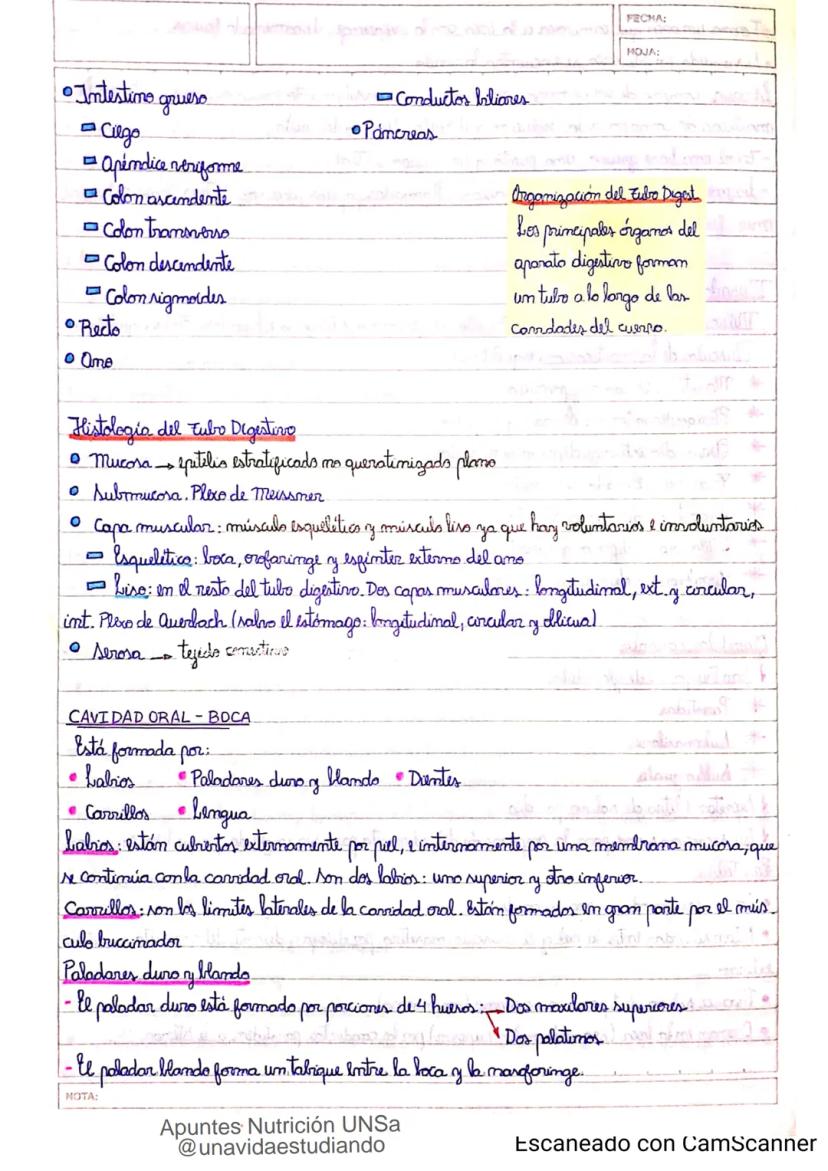 FECHA:
HOJA:
• Intestino grueso
Ciego
Apéndice veriforme
Colon ascendente
Colon transverso
Colon descendente
Colon sigmoides
• Recto
• Ano
Conductos biliares
• Páncreas
Organización del Tubo Digest.
Los principales órganos del
aparato digestivo forman
un tubo a lo largo de las
cavidades del cuerpo.
Histología del Tubo Digestivo
• Mucosa → epitelio estratificado no queratinizado plano
• Submucosa. Plexo de Meissner
• Capa muscular: músculo esquelético y músculo liso ya que hay voluntarios e involuntarios
Esquelético: boca, orofaringe y esfínter externo del ano
Liso: en el resto del tubo digestivo. Dos capas musculares: longitudinal, ext. y circular,
int. Plexo de Auerbach (salvo el estómago: longitudinal, circular y oblicua)
• Serosa → tejido conectivo
CAVIDAD ORAL - BOCA
Está formada por:
• Labios • Paladares duro y blando • Dientes
• Carrillos • Lengua
Labios: están cubiertos externamente por piel, e internamente por una membrana mucosa, que
se continúa con la cavidad oral. Son dos labios: uno superior y otro inferior.
Carrillos: son los límites laterales de la cavidad oral. Están formados en gran parte por el mús-
culo buccinador
Paladares duro y blando
- El paladar duro está formado por porciones de 4 huesos: → Dos maxilares superiores
Dos palatinos
- El paladar blando forma un tabique entre la boca y la nasofaringe.
NOTA:
Apuntes Nutrición UNSa
@unavidaestudiando
Escaneado con CamScanner